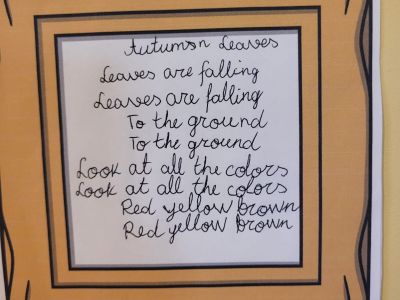 Autumn Leaves
Leaves are falling
Leaves are falling
To the ground
To the ground
Look at all the colors
Look at all the colors
Red yellow brown
Red yellow brown